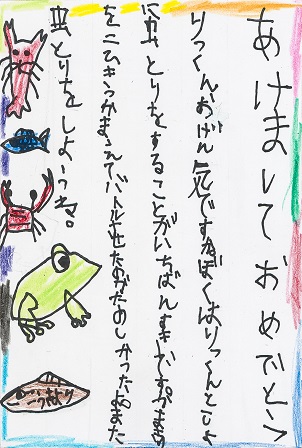 あけましておめでとう
りっくんおげん気ですかぼくはりっくんといっしょ
に虫とりをすることがいちばんすきです。かまきり
を二ひきつかまえてバトルさせたのがたのしかったよまた
虫とりをしようね。